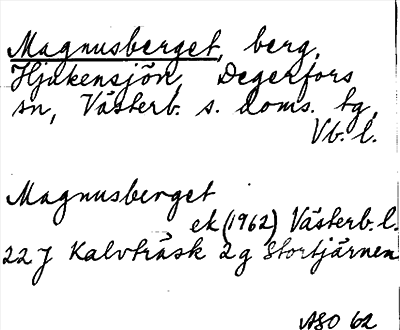 Magnusberget, berg,
Hjukensjön, Degerfors
sn, Västerb. s. doms. tg,
Vb. l.
Magnusberget
ek (1962) Västerb. l.
22 J Kalvträsk 2 g Stortjärnen
ASO 62